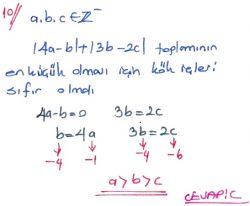 10/ a,b,c ∈ Z⁻
|4a-b|+|3b-2c| toplamının
en küçük olması için kök içleri
sıfır olmalı
4a-b=0 3b=2c
b=4a 3b=2c
-4 -1 -4 -6
a>b>c
CEVAP:C